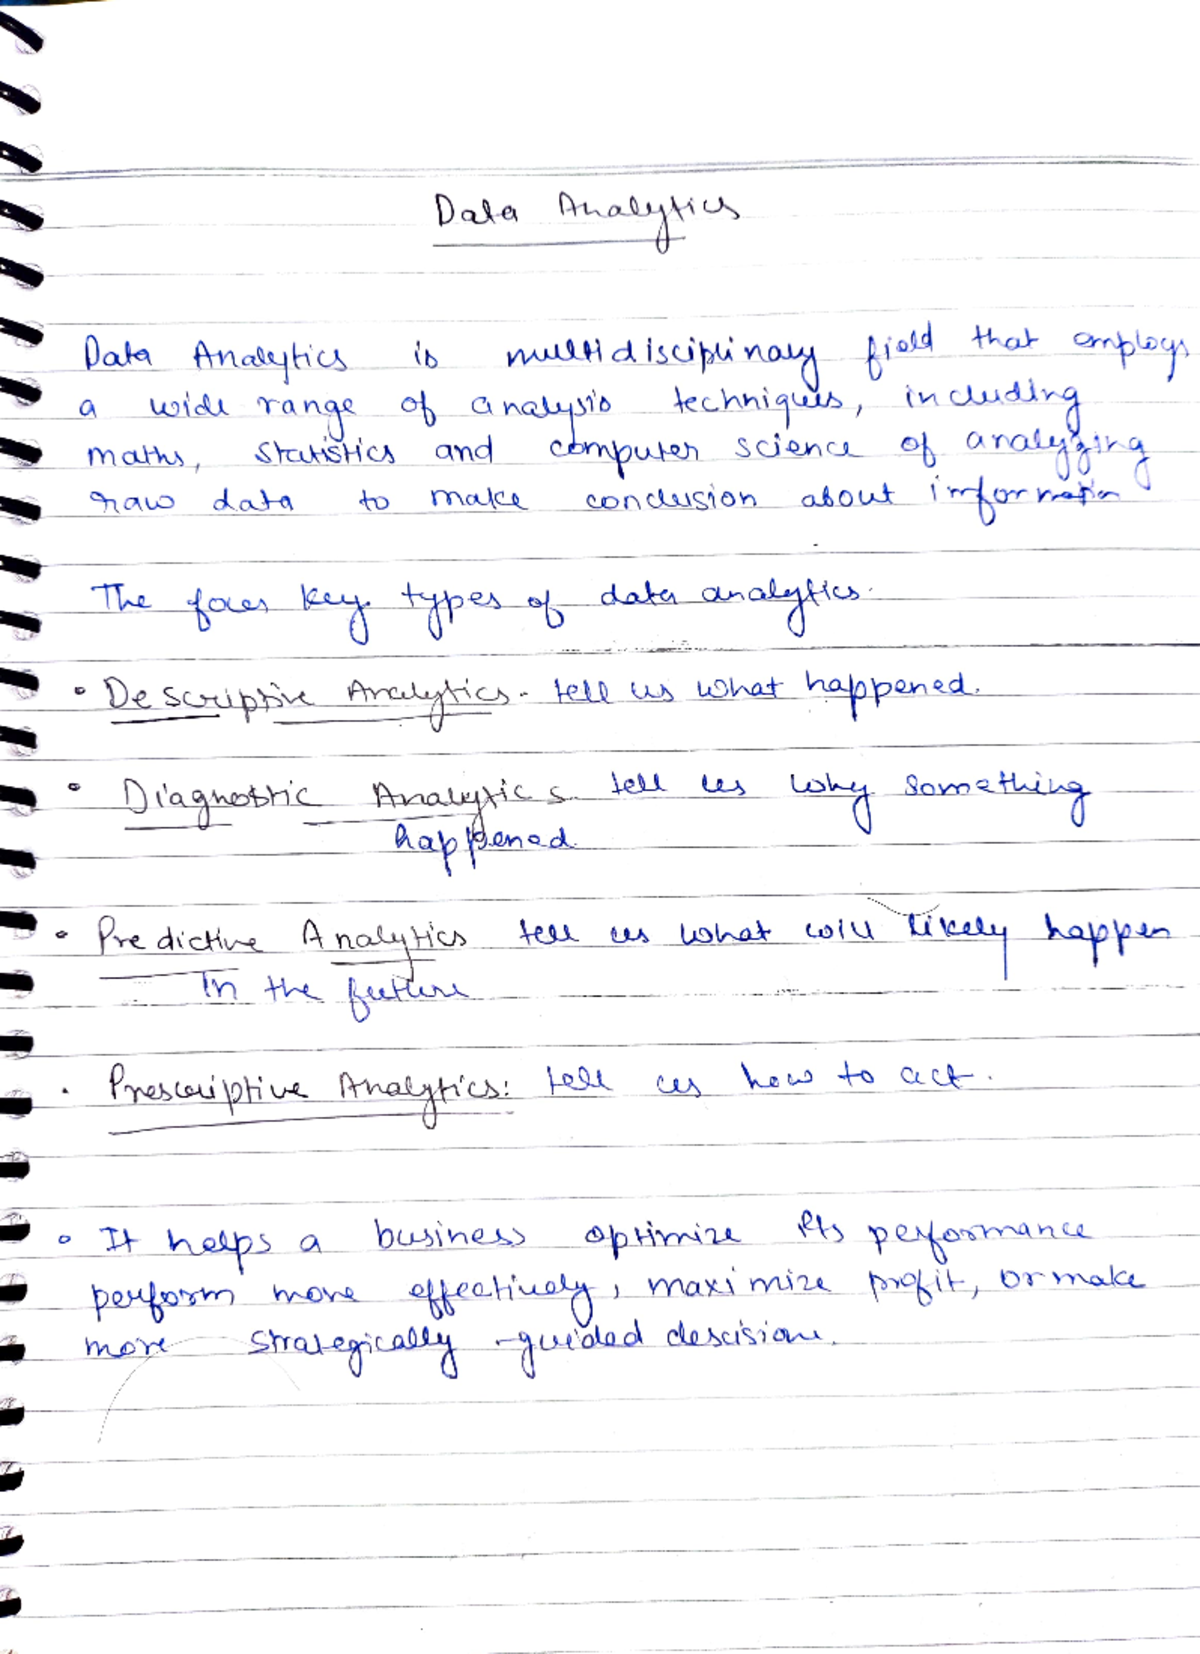 Data Analytics
Data Analytics is multidisciplinary field that employs
a wide range of analysis techniques, including
maths, statistics and computer science of analyzing
raw data to make conclusion about information
The four key types of data analytics.
• Descriptive Analytics - tell us what happened.
• Diagnostic Analytics - tell us why something
happened.
• Predictive Analytics tell us what will likely happen
In the future
• Prescriptive Analytics: tell us how to act.
• It helps a business optimize its performance
perform more effectively, maximize profit, or make
more strategically -guided descision.